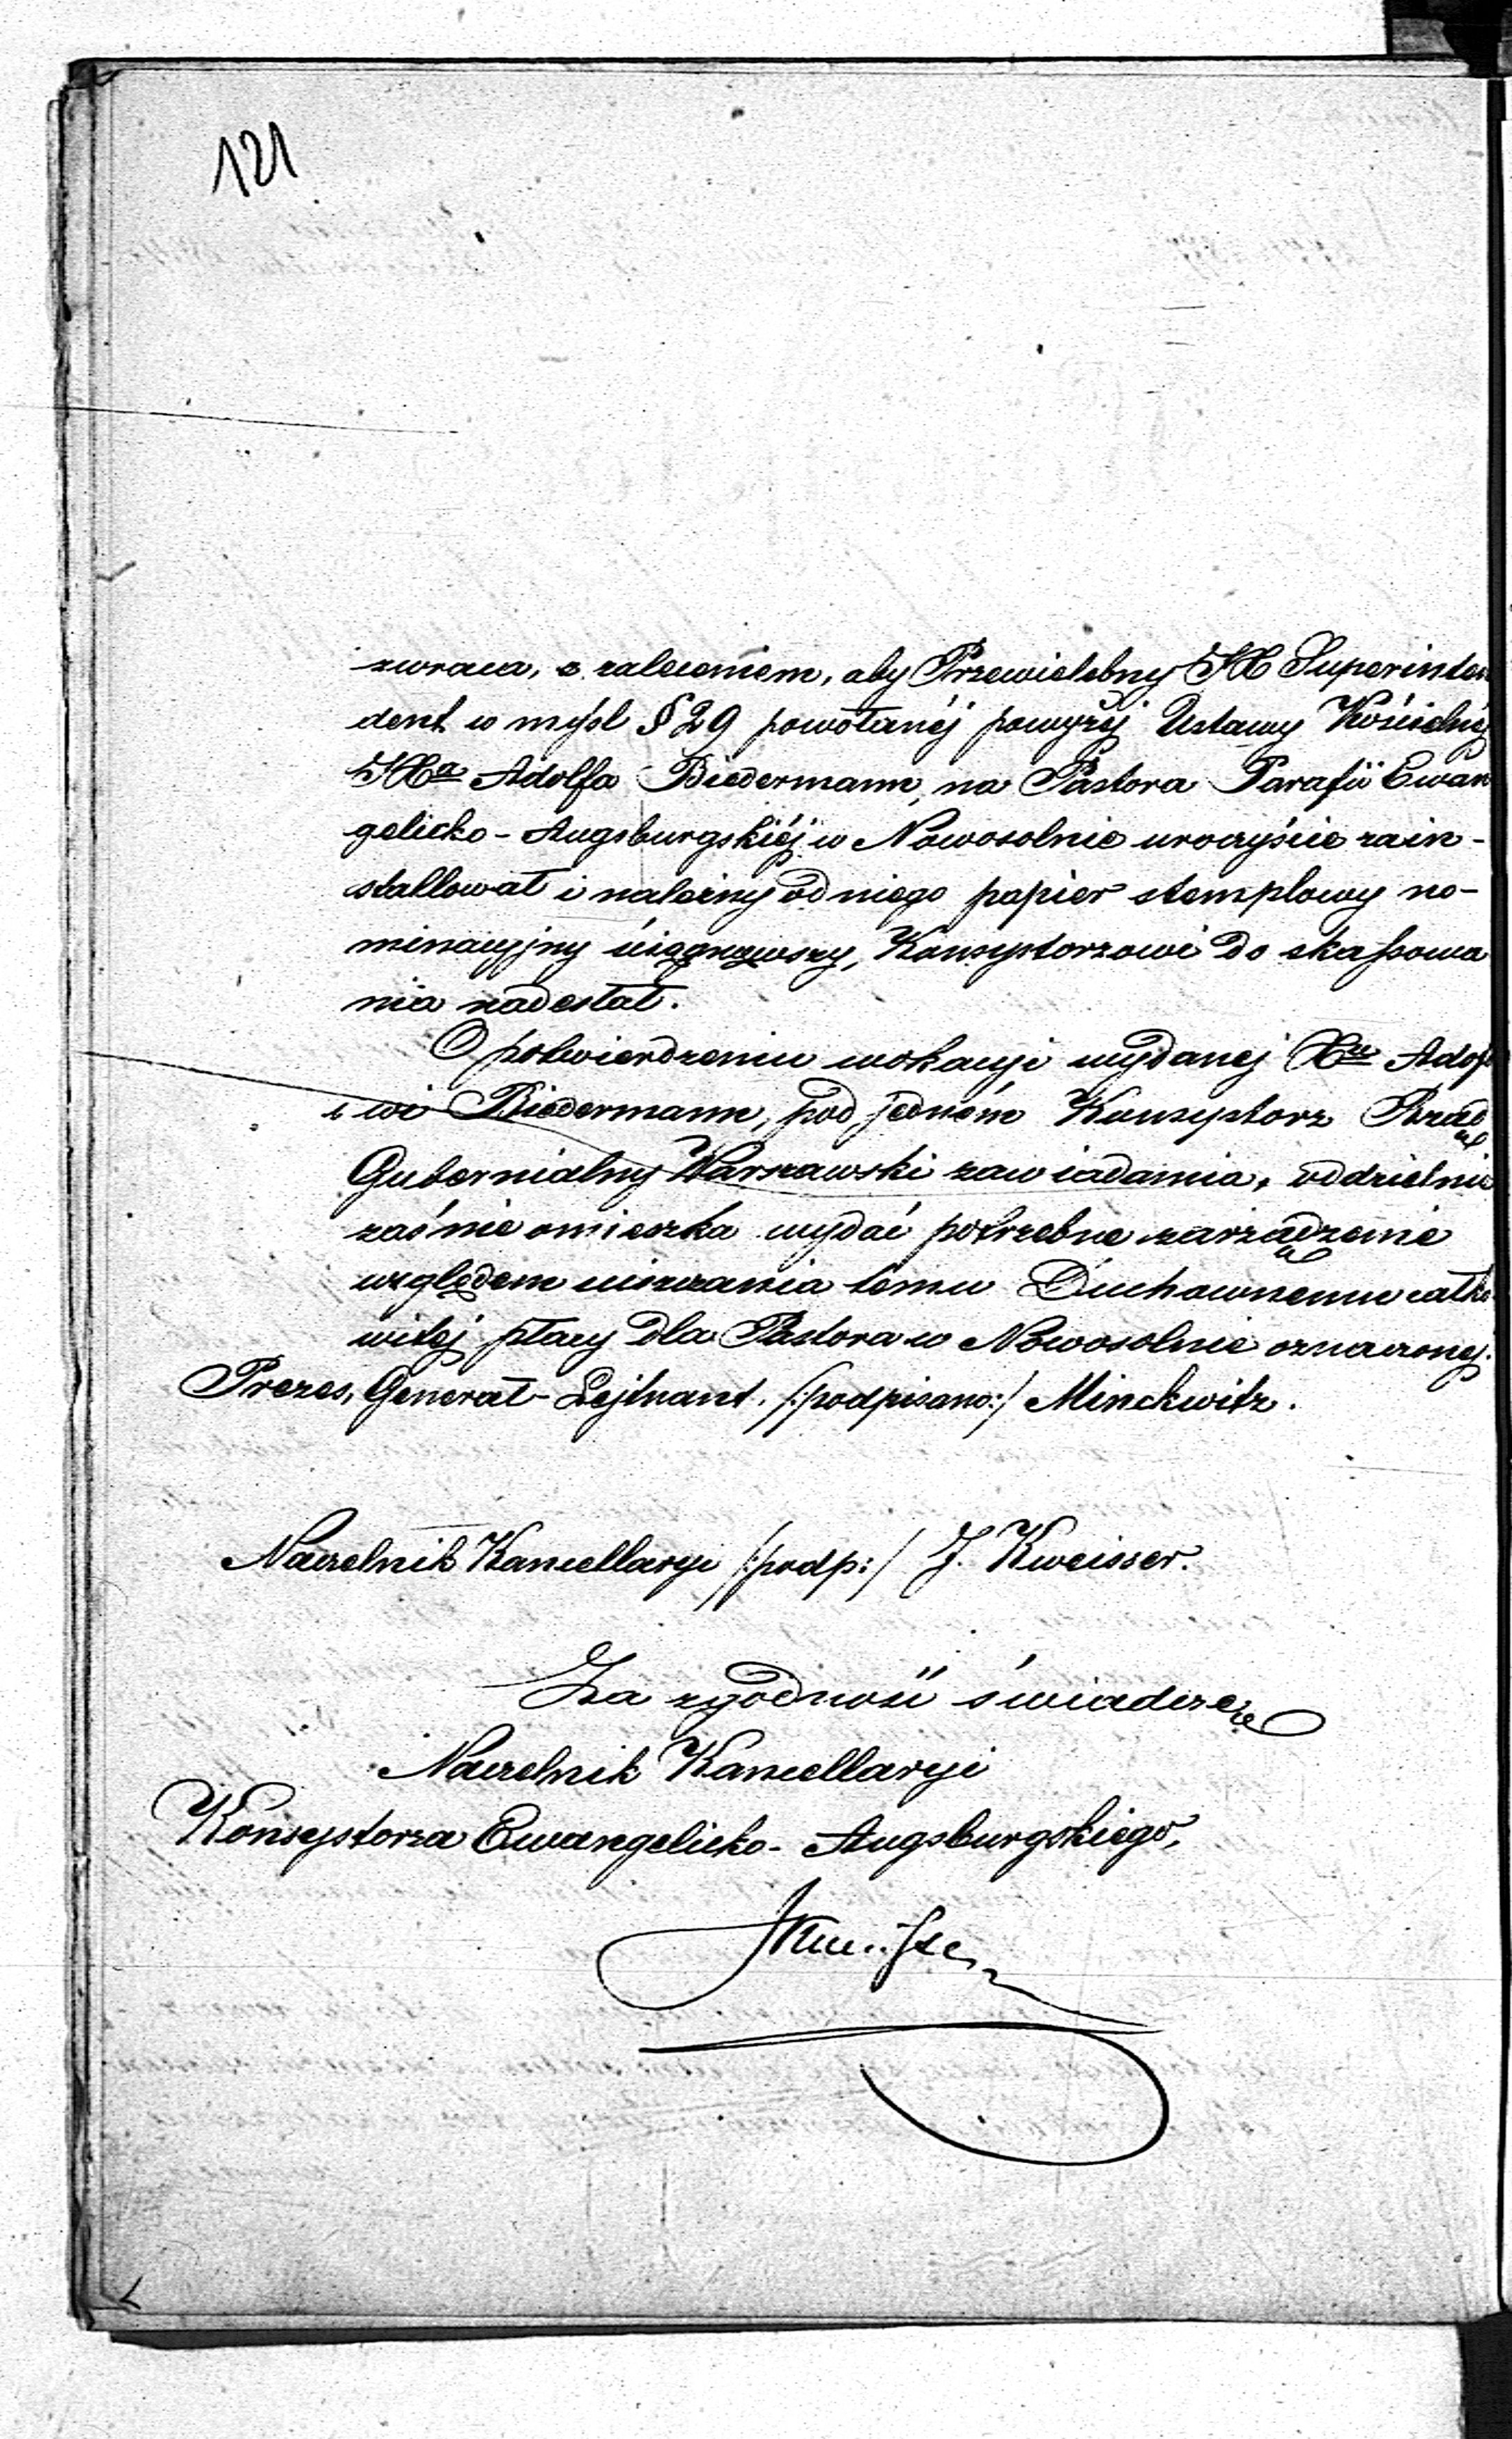 121
zwraca, z zaleceniem, aby Przewielebny JX Superinten
dent w myśl § 29 powołanéj powyżéj Ustawy Kościelnéj
JXa Adolfa Biedermann, na Pastora Parafii Ewan
gelicko-Augsburgskiéj w Nowosolnie uroczyście zain-
stallował i należny od niego papier stemplowy no-
minacyjny ściągnąwszy, Konsystorzowi do skassowa
nia nadesłał.
O potwierdzeniu wokacyi wydanej Xu Adolfo
wi Biedermann, pod jedném Konsystorz Rząd
Gubernialny Warszawski zawiadamia, oddzielnie
zaś nie omieszka wydać potrzebne zarządzenie
względem uiszczania temu Duchownemu całko
witej płacy dla Pastora w Nowosolnie oznaczonej.
Prezes, Generał-Lejtnant. /:podpisano:/ Minckwitz.
Naczelnik Kancellaryi /:podp:/ J. Kweisser.
Za zgodność świadczę
Naczelnik Kancellaryi
Konsystorza Ewangelicko-Augsburgskiego,